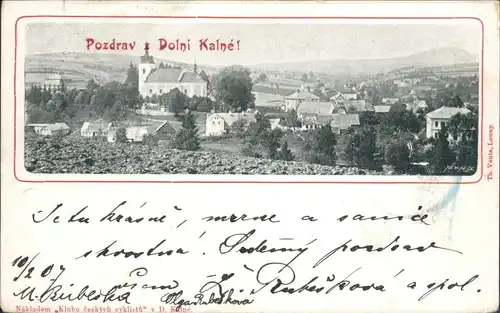 Pozdrav z Dolní Kalné!
Th. Venta, Locny.
Je tu krásné, mrzne a sanice
skvostná. Srdečný pozdrav
10/2 07 všem Z. Rubešková a spol.
M. Rubeška Olga Rubešková
Nákladem „Klubu českých cyklistů" v D. Kalné.